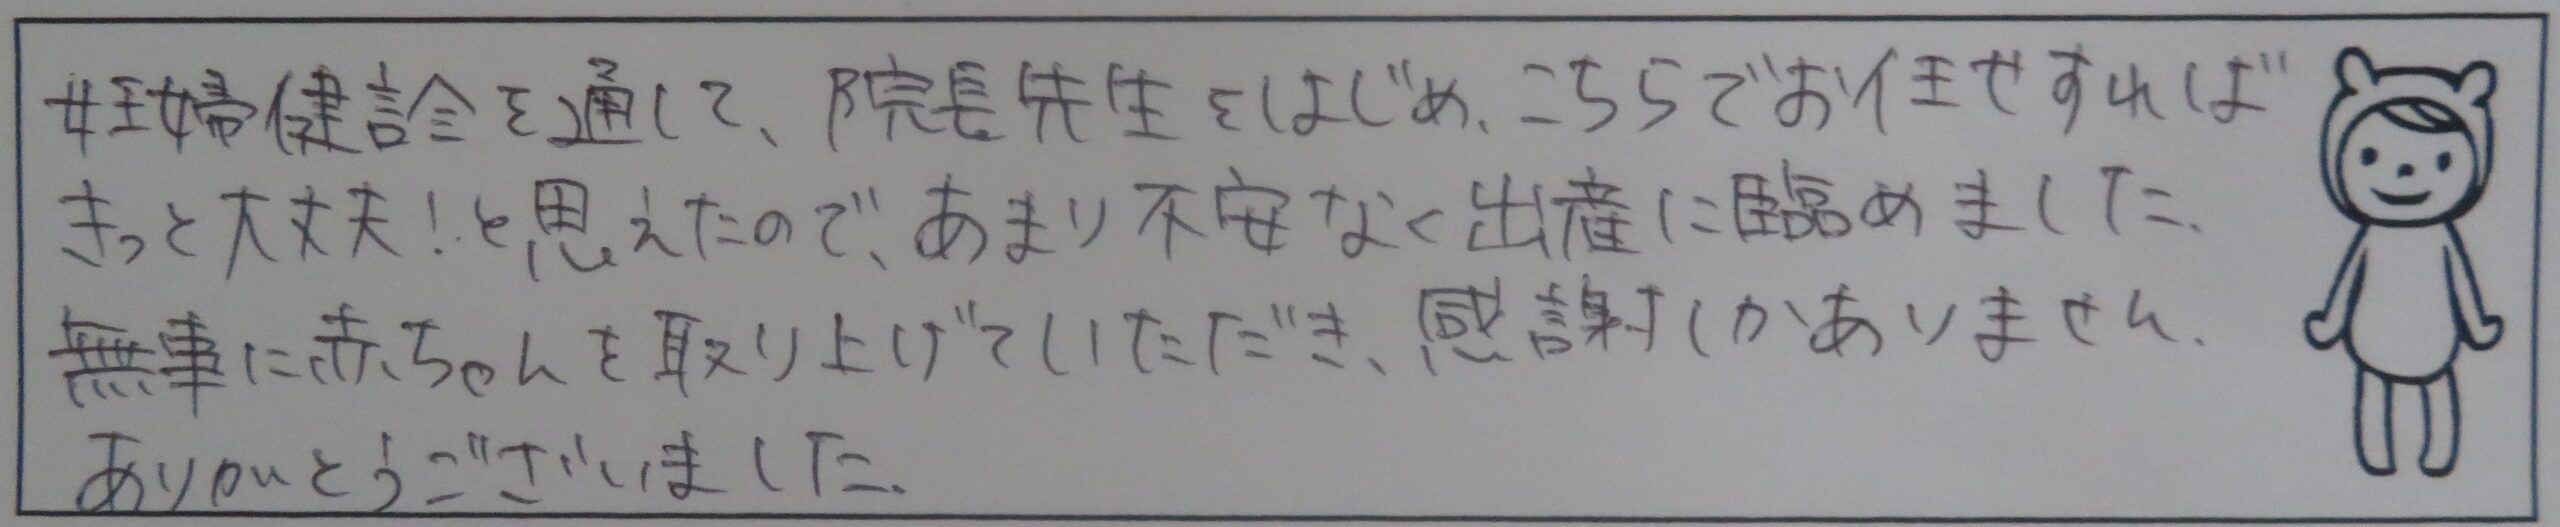 妊婦健診を通して、院長先生をはじめ、こちらでお任せすれば
きっと大丈夫!と思えたので、あまり不安なく出産に臨めました。
無事に赤ちゃんを取り上げていただき、感謝しかありません。
ありがとうございました。